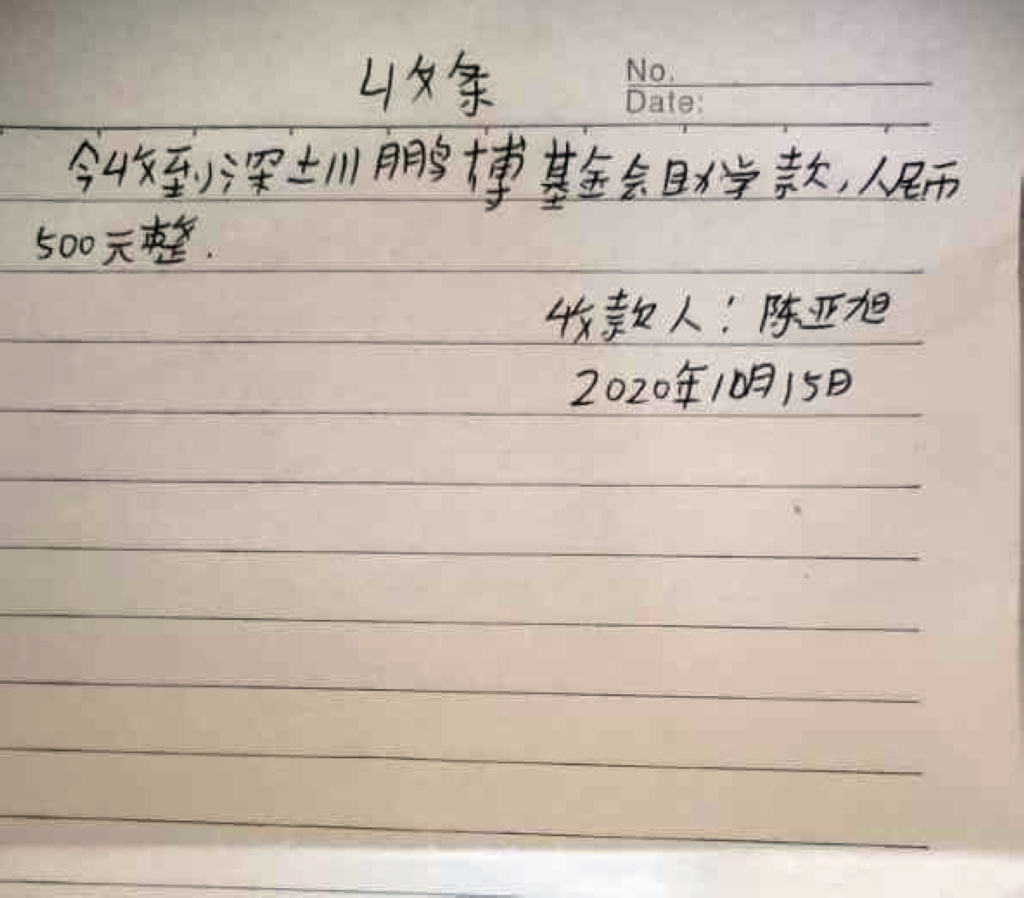 收条
No.
Date:
今收到深圳鹏博基金会助学款,人民币
500元整.
收款人:陈亚旭
2020年10月15日